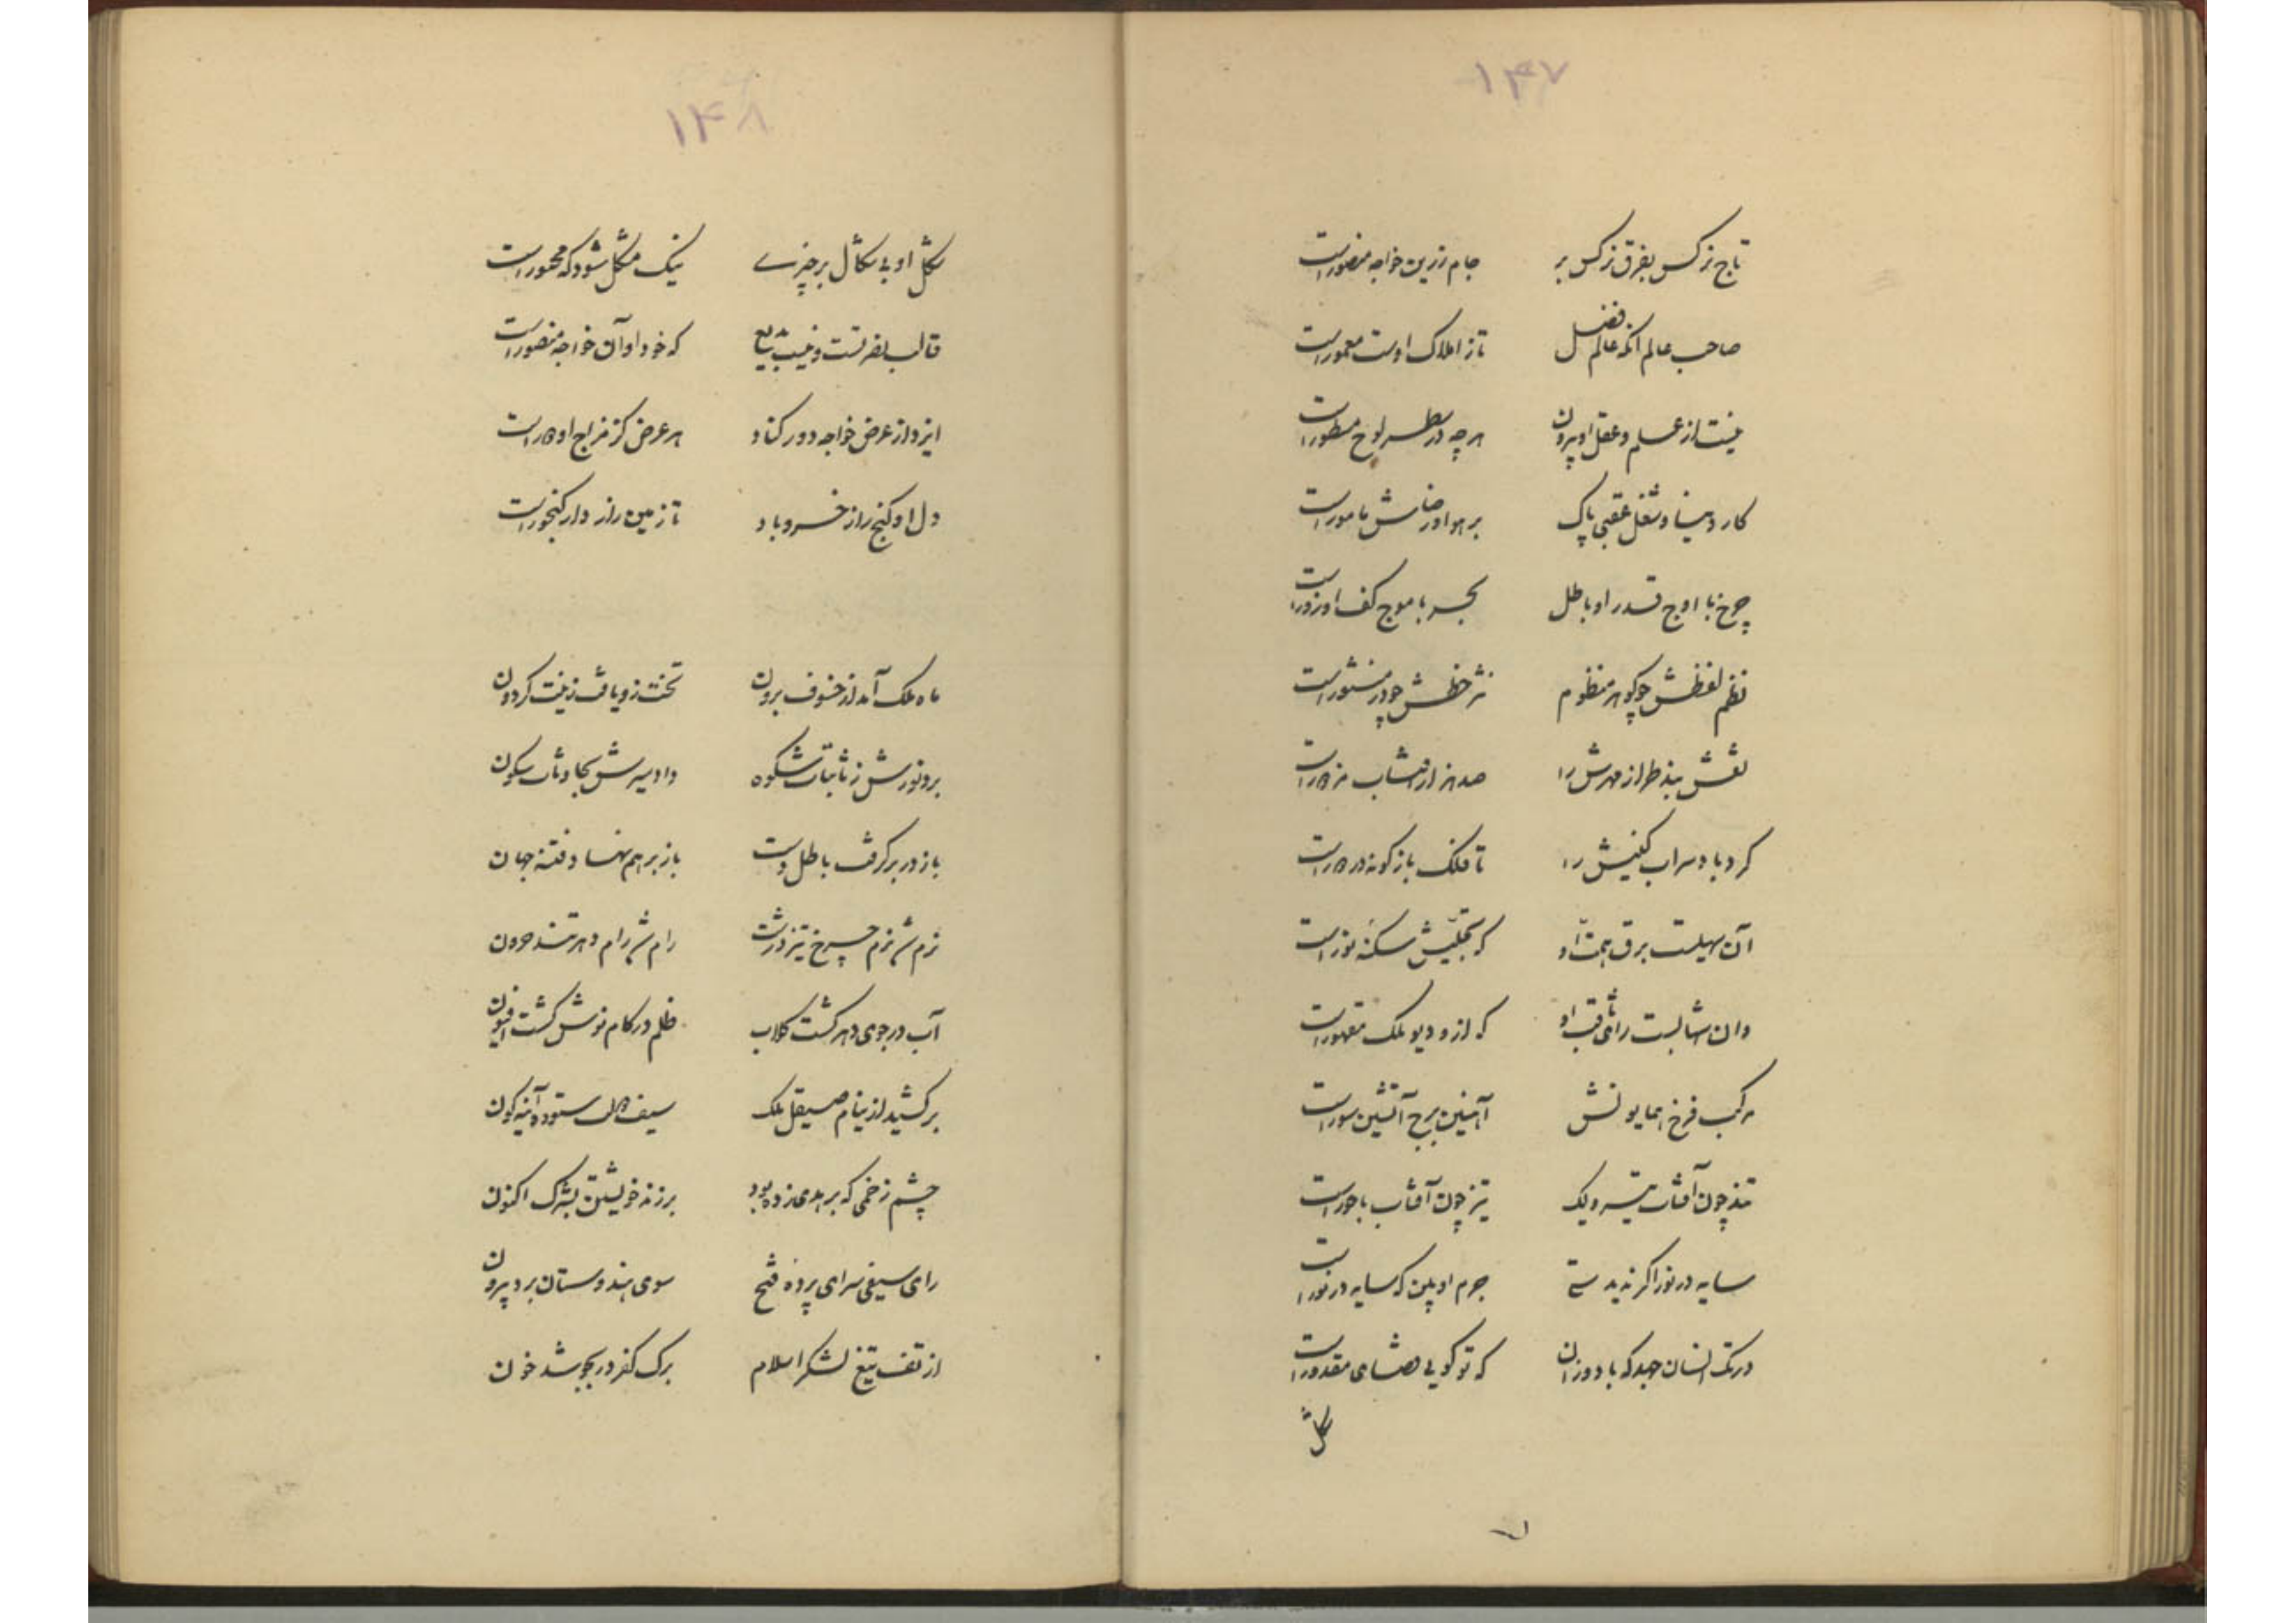 ۱۴۷
تاج نرکس بفرق نرکس بر جام زرین خواجه منصورست
صاحب عالم آنکه عالم فضل تاز املاک اوست معمورست
نیست از علم و عقل او بیرون هرچه در سطر لوح مسطورست
کار دنیا و شغل عقبی پاک بر هوا و رضاش مامورست
چرخ با اوج قدر او باطل بحر با موج کف او زورست
نظم لفظش چو کوهر منظوم نثر خطش چو در منثورست
نقش بند طراز مهرش را صد هزار آفتاب مزدورست
کرد باد سراب کینش را تا فلک بازکونه در دورست
آن سهیلست برق همت او که تجلیش سکنه نورست
وان شهابست رأی ثاقب او که ازو دیو ملک مقهورست
مرکب فرخ همایونش آهنین برج آتشین سورست
تند چون آفتاب نیست ولیک تیز چون آفتاب باحورست
سایه در نور اکر ندیدستی جرم او بین که سایه در نورست
در تک انسان جهد که باد وزان که تو کویی مقدورست
شکل
۱۴۸
شکل او بی شکال بر چیزی نیک مشکل شود که محصورست
قالب نصرتست و نیست بدیع که خود او آن خواجه منصورست
ایزد از عرض خواجه دور کناد هر عرض کز مزاج او دورست
دل او کنج راز خسرو باد تا زمین رازدار کنجورست
ماه ملک آمد از خسوف برون تخت زو یافت زینت کردون
برد نورش ز ثابتات شکوه داد سیرش بحادثات سکون
باز در بر کرفت باطل دست باز بر هم نهاد فتنه جفون
نرم شد نرم چرخ تیز درشت رام شد رام دهر تند حرون
آب در جوی دهر کشت کلاب ظلم در کام نوش کشت افیون
برکشید از نیام صیقل ملک سیف دولت ستوده آینه کون
چشم زخمی که بر هدی زده بود برزند خویشتن بشرک اکنون
رای سیفی سرای پرده فتح سوی هندوستان برد بیرون
از تف تیغ لشکر اسلام برک کفر در بجوشد خون